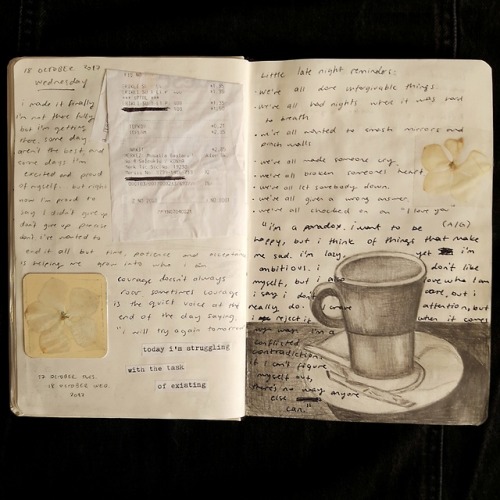 18 OCTOBER 2017
Wednesday
i made it finally
i'm not there fully
but i'm getting
there, some day
aren't the best, and
some days i'm
excited and proud
of myself. but right
now i'm proud to
say i didn't give up
don't give up promise
don't. i've wanted to
end it all but time, patience and acceptance
is helping me grow into who i am
courage doesn't always
roar sometimes courage
is the quiet voice at the
end of the day saying,
"i will try again tomorrow"
today i'm struggling
with the task
of existing
17 OCTOBER TUES.
18 OCTOBER WED.
2017
Little late night reminders:
- we're all done unforgivable things.
- we're all had nights when it was hard
to breath
- we're all wanted to smash mirrors and
punch walls
- we're all made someone cry.
- we're all broken someones heart
- we're all let somebody down.
- we're all given a wrong answer.
- we're all choked on an "i love you"
(A/G)
"i'm a paradox. i want to be
happy, but i think of things that make
me sad. i'm lazy, yet i'm
ambitious. i don't like
myself, but i also love who i am
i say i don't care, but i
really do. i crave attention, but
reject it when it comes
my way. i'm a
conflicted
contradiction.
if i can't figure
myself out,
there's no way anyone
else
can."